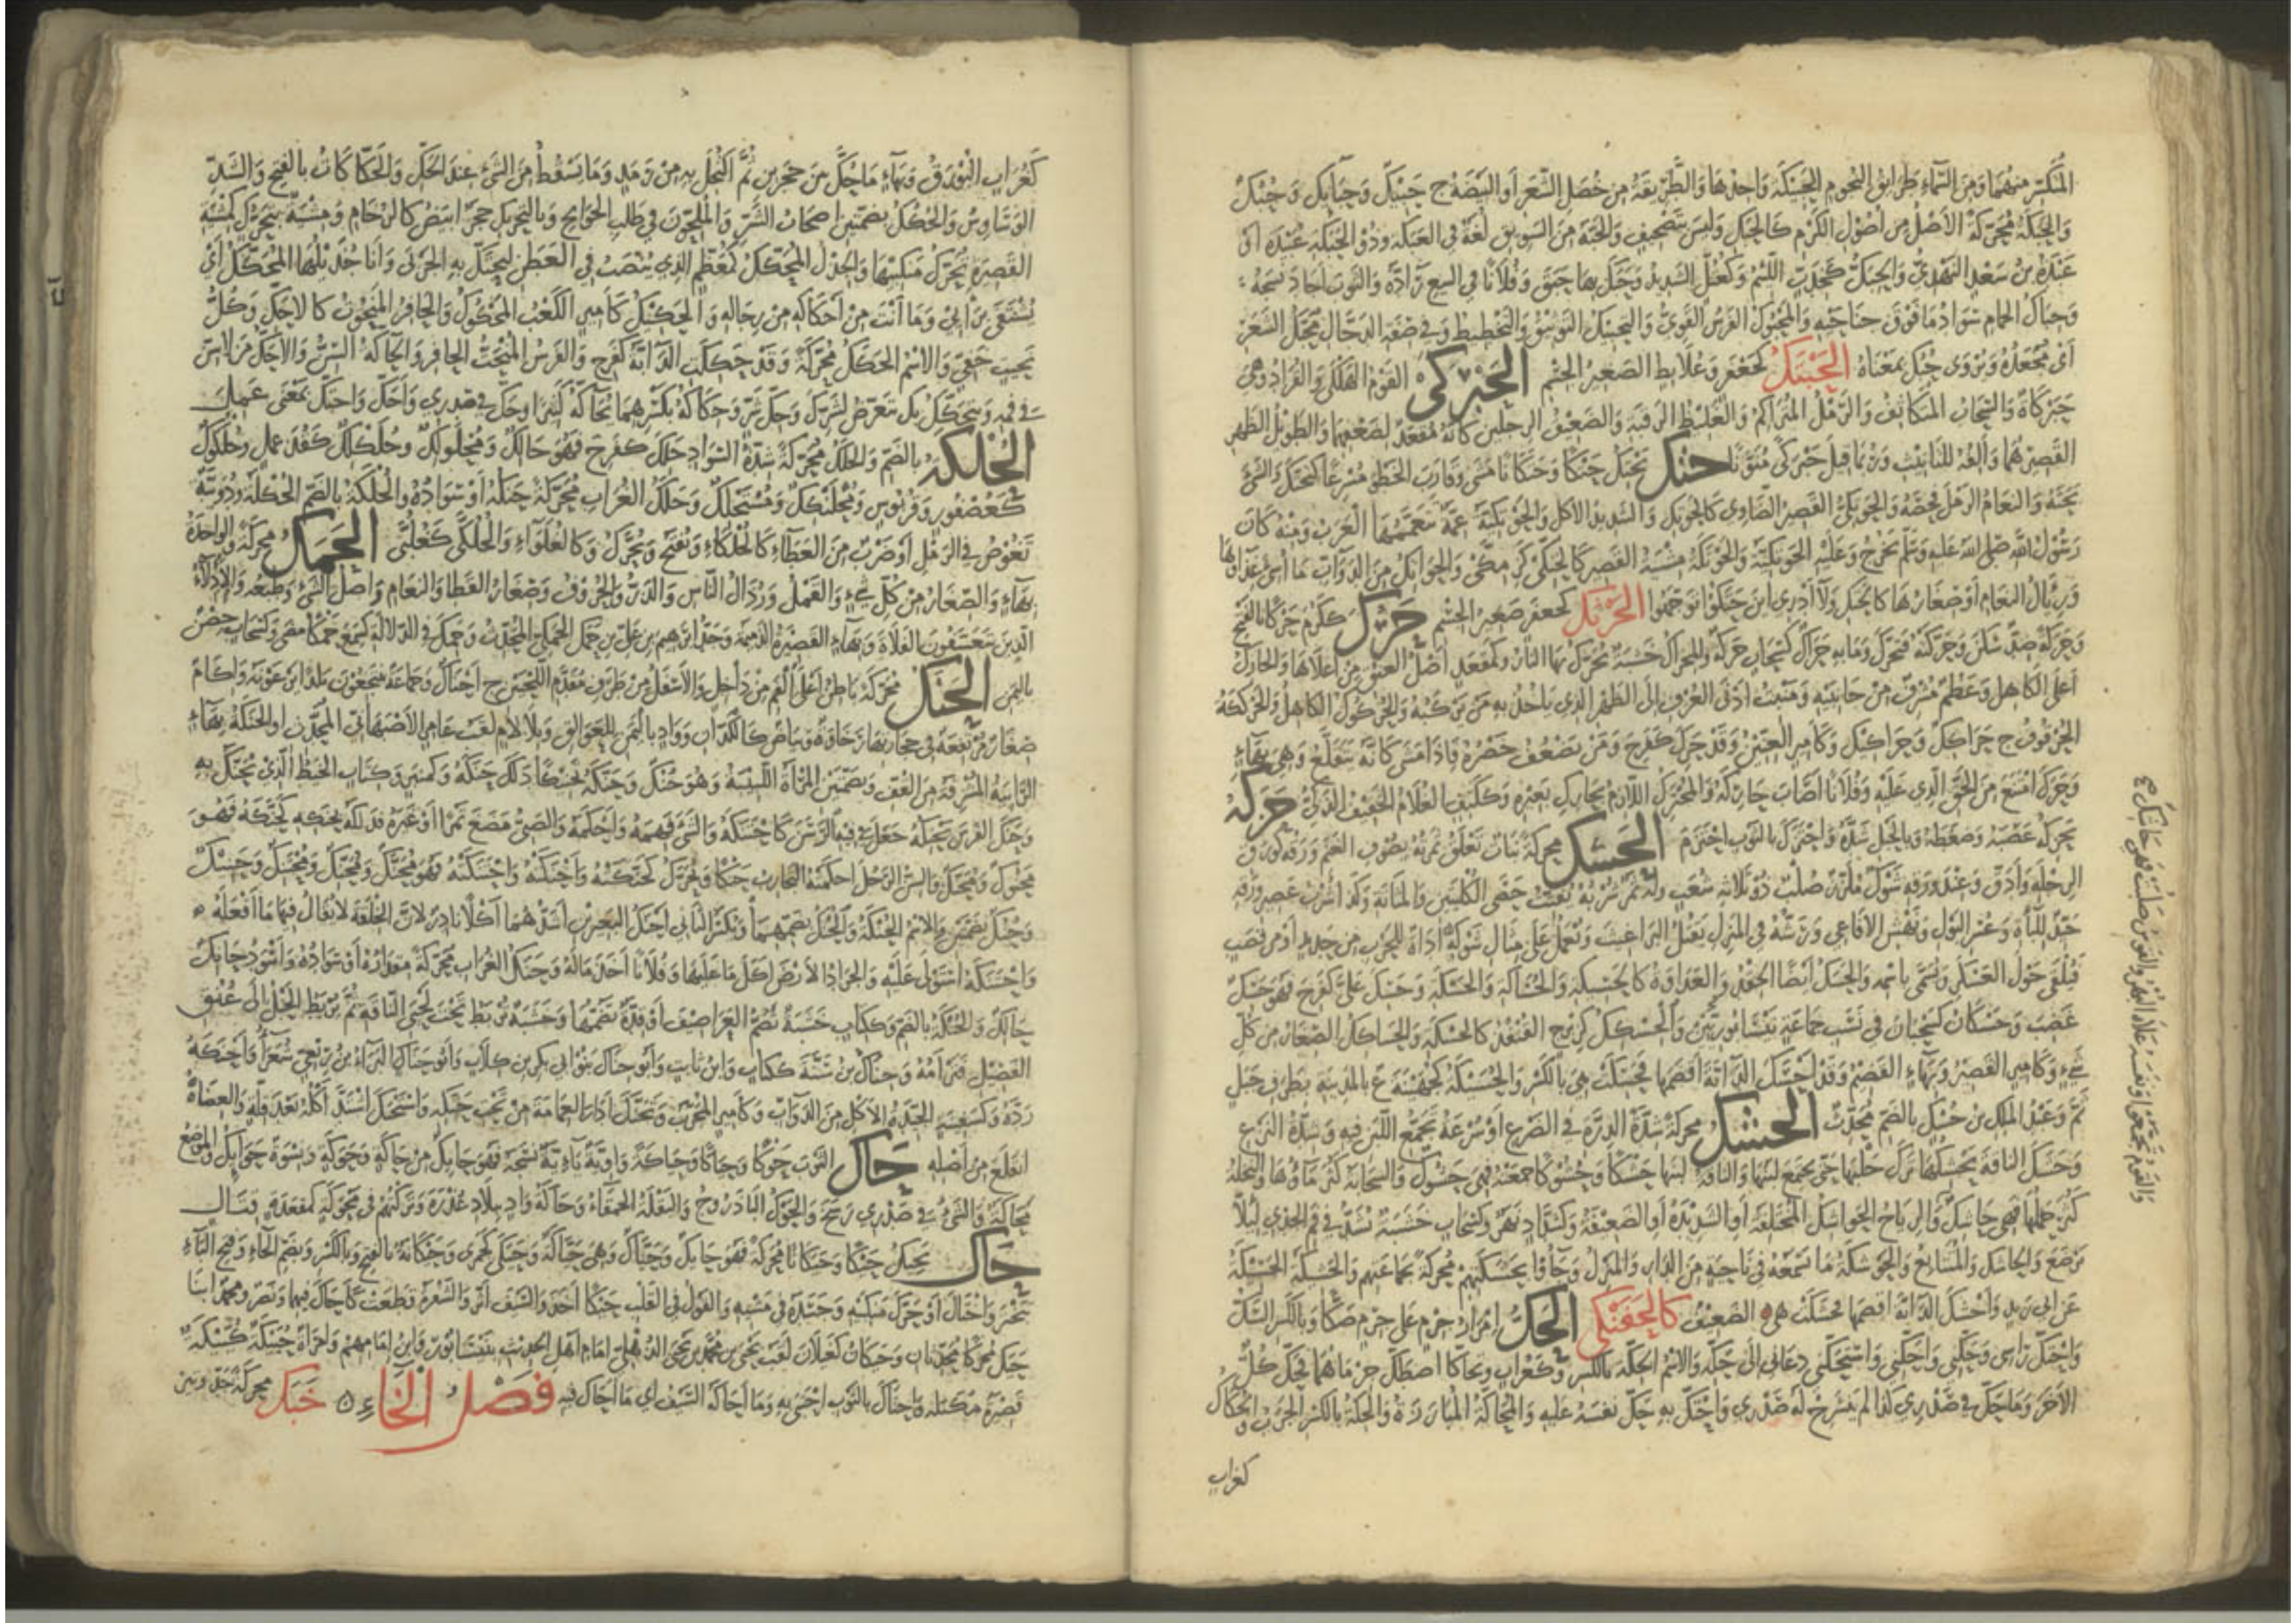 المتكسر منهما ومن السماء طرائق النجوم الحبيكة واحدها والطريقة من خصل الشعر أو البيضة ج حبيك وحبائك وحبك
والحبكة محركة الأصل من أصول الكرم كالحبك وليس بتصحيف والحبة من السويق لغة في العبكة وذو الحبكة عبيدة أو
عبدة بن سعد النهدي والحبك كخدب اللئيم وكعتل الشديد وحبك بها حبق وفلانا في البيع راده والثوب أجاد نسجه
وحباك الحمام سواد ما فوق جناحيه والمحبوك الفرس القوي والتحبيك التوثيق والتخطيط وفي صفة الدجال محبك الشعر
أي مجعده ويروى حبك بمعناه الحبتك كجعفر وعلابط الصغير الجسم الحبركى القوم الهلكى والقراد وهي
حبركاة والسحاب المتكاثف والرمل المتراكم والغليظ الرقبة والضعيف الرجلين كأنه مقعد لضعفهما والطويل الظهر
القصيرهما وألفه للتأنيث وربما قيل حبركى منونا حتك يحتك حتكا وحتكانا مشى وقارب الخطو مسرعا كتحتك والشيء
بحثه والنعام الرمل فحصه والحوتكي القصير الضاوي كالحوتك والشديد الأكل والحوتكية عمة تتعممها العرب ومنه كان
رسول الله صلى الله عليه وسلم يخرج وعليه الحوتكية والحوتكة مشية القصير كالحتكى كزمكى والحواتك من الدواب ما أسيء غذاؤها
ورئال النعام أو صغارها كالحتك ولا أدري أين حتكوا توجهوا الحرتك كجعفر صغير الجسم حرك ككرم حركا بالفتح
وحركة ضد سكن وحركته فتحرك وما به حراك كسحاب حركة والمحراك خشبة تحرك بها النار وكمقعد أصل العنق من أعلاها والحارك
أعلى الكاهل وعظم مشرف من جانبيه ومنبت أدنى العرف إلى الظهر الذي يأخذ به من يركبه والحركوك الكاهل والحركة
الحرقوف ج حراكك وحراكيك وكأمير العنين وقد حرك كفرح ومن يضعف خصره فإذا مشى كأنه يتقلع وهي بهاء
وحرك امتنع من الحق الذي عليه وفلانا أصاب حاركه والمحترك اللازم لحارك بعيره وككتف الغلام الخفيف الذكي حزكه
يحزكه عصبه وضغطه وبالحبل شده واحتزك بالثوب احتزم الحسك محركة نبات تعلق ثمرته بصوف الغنم ورقه كورق
الرجلة وأدق وعند ورقه شوك ملزز صلب ذو ثلاث شعب وله ثمر شربه يفتت حصى الكليتين والمثانة وكذا شرب عصير ورقه
جيد للباءة وعسر البول ونهش الأفاعي ورشه في المنزل يقتل البراغيث ويعمل على مثال شوكه أداة للحرب من حديد أو من قصب
فيلقى حول العسكر ويسمى باسمه والحسك أيضا الحقد والعداوة كالحسيكة والحساكة والحسكة وحسك علي كفرح فهو حسك
غضب وحسكان كسحبان في نسب جماعة نيسابوريين والحسكك كزبرج القنفذ كالحسكة والحساكك الصغار من كل
شيء وكأمير القصير وبهاء القضيم وقد أحسك الدابة أقضمها فحسكت هي بالكسر والحسيكة كجهينة ع بالمدينة بطرف جبل
ثم وعبد الملك بن حسك بالضم محدث الحشك محركة شدة الدرة في الضرع أو سرعة تجمع اللبن فيه وشدة النزع
وحشك الناقة يحشكها ترك حلبها حتى يجتمع لبنها والناقة لبنها حشكا وحشوكا جمعته فهي حشوك والسحابة كثر ماؤها والنخلة
كثر حملها فهي حاشك والرياح الحواشك المختلفة أو الشديدة أو الضعيفة وكشداد نهر وكسحاب خشبة تشد في فم الجدي لئلا
يرضع والحاشك والمتتابع والحوشكة ما تسمعه في ناحية من الدار والمنزل وجاؤا بحشكتهم محركة بجماعتهم والحشكة الحسكة
عن ابي زيد وأحشك الدابة أقضمها فحشكت هي الضعيف كالحفنكى الحك إمرار جرم على جرم صكا وبالكسر الشك
واحتك رأسي وحكني وأحكني واستحكني دعاني إلى حكه والاسم الحكة بالكسر وكغراب وتحاكا اصطك جرماهما فحك كل
الآخر وما حك في صدري كذا لم ينشرح له صدري واحتك به حك نفسه عليه والمحاكة المباراة والحكة بالكسر الجرب والحكاك
كغراب
والقوم تجمعوا ونفسه علاه البهر والقوس صلبت فهي حاشك صح
كغراب البورق وبهاء ما حك من حجرين ثم اكتحل به من رمد وما يسقط من الشيء عند الحك والحكاكات بالفتح والشد
الوساوس والحكك بضمتين أصحاب الشر والملحون في طلب الحوائج وبالتحريك حجر أبيض كالرخام ومشية بتحرك كمشية
القصيرة تحرك منكبيها والجذل المحكك كمعظم الذي ينصب في العطن ليحتك به الجربى وأنا جذيلها المحكك أي
يستشفى برأيي وما أنت من أحكاكه من رجاله والحكيك كأمير الكعب المحكوك والحافر المنحوت كالأحك وكل
نحيت خفي والاسم الحكك محركة وقد حككت الدابة كفرح والفرس المنحت الحافر والحاكة السن والأحك من لا سن
في فيه ويتحكك بك يتعرض لشرك وحك شر وحكاكه بكسرهما يحاكه كثيرا وحك في صدري وأحك واحتك بمعنى عمل
الحلكة بالضم والحلك محركة شدة السواد حلك كفرح فهو حالك ومحلولك وحلكك كقذعمل وحلكوك
كعصفور وقربوس ومحلنكك ومستحلك وحلك الغراب محركة حنكه أو سواده والحلكة بالضم الحكلة ودويبة
تغوص في الرمل أو ضرب من العظاء كالحلكاء وتفتح وتحرك وكالغلواء والحلكى كغلبى الحمك محركة والواحدة
بهاء والصغار من كل شيء والقمل ورذال الناس والذر والحروف وصغار القطا والنعام وأصل الشيء وطبعه والأدلاء
الذين يتعسفون بالفلاة وبهاء القصيرة الدميمة وجد إبراهيم بن علي بن حمك الحمكي المحدث وحمك في الدلالة كسمع حمكا مضى وكسحاب حصن
باليمن الحنك محركة باطن أعلى الفم من داخل والأسفل من طرف مقدم اللحيين ج أحناك وجماعة ينتجعون بلدا يرعونه وآكام
صغار مرتفعة في حجارتها رخاوة وبياض كالكدان وواد باليمن للعوالق وبلا لام لقب عامر الأصبهاني المحدث أو الحنكة بهاء
الرابية المشرفة من القف وبضمتين المرأة اللبيبة وهو حنك وحنكه تحنيكا دلك حنكه وكمنبر وكتاب الخيط الذي يحنك به
وحنك الفرس يحنكه جعل في فيه الرسن كاحتنكه والشيء فهمه وأحكمه والصبي مضغ تمرا أو غيره فدلكه بحنكه كحنكه فهو
محنوك ومحنك والسن الرجل أحكمته التجارب حنكا ويحرك كحنكته وأحنكته واحتنكته فهو محنك ومحنك ومحتنك وحنيك
وحنك بضمتين والاسم الحنكة والحنك بضمهما ويكسر الثاني أحنك البعيرين أشدهما أكلا نادر لأن الخلقة لا يقال فيها ما أفعله
واحتنكه استولى عليه والجراد الأرض أكل ما عليها وفلانا أخذ ماله وحنك الغراب محركة منقاره أو سواده وأسود حانك
حالك والحنكة بالضم وككتاب خشبة تضم الغراضيف أو قدة تضمها وخشبة تربط تحت لحيي الناقة ثم يربط الحبل إلى عنق
الفصيل فترأمه وحناك بن سنة ككتاب وابن ثابت وأبو حناك بنو أبي بكر بن كلاب وأبو حناك البراء بن ربعي شعراء وأحنكه
رده وكسفينة الجيدة الأكل من الدواب وكأمير المجرب وتحنك أدار العمامة من تحت حنكه واستحنك اشتد أكله بعد قلة والعضاه
انقلع من أصله حاك الثوب حوكا وحياكا وحياكة واوية يائية نسجه فهو حائك من حاكة وحوكة ونسوة حوائك والموضع
محاكة والشيء في صدري رسخ والحوك الباذروج والبقلة الحمقاء وحاكة واد ببلاد عذرة وتركتهم في محوكة كمقعدة قتال
حاك يحيك حيكا وحيكانا محركة فهو حائك وحياك وهي حياكة وحيكى كجمزى وحيكانة بالفتح وبالكسر وبضم الحاء وفتح الياء
تبختر واختال أو حرك منكبيه وجسده في مشيه والقول في القلب حيكا أخذ والسيف أثر والشفرة قطعت كأحاك فيهما ونصر ومحمد ابنا
حيك محركا محدثان وحيكان كغيلان لقب يحيى بن محمد بن يحيى الذهلي إمام أهل الحديث بنيسابور وابن إمامهم وامرأة حييكة
قصيرة مكتلة واحتاك بالثوب احتبى به وما أحاكه السيف أي ما أحاك فيه فصل الخاء خبك محركة جد وبين